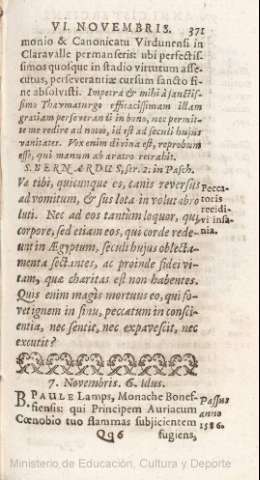 VI. NOVEMBRIS. 371
monio & Canonicatu Virdunensi in
Claravalle permanseris: ubi perfectis-
simos quosque in stadio virtutum asse-
cutus, perseverantiæ cursum sancto fi-
ne absolvisti. Impetra & mihi à sanctis-
simo Thaumaturgo efficacissimam illam
gratiam perseverandi in bono, nec permit-
te me redire ad novui, id est ad seculi hujus
vanitates. Vox enim divina est, reprobum
esse, qui manum ab aratro retrahit.
S. BERNARDUS, ser. 2. in Pasch.
Va tibi, quicunque es, canis reversus
ad vomitum, & sus lota in volutabro
luti. Nec ad eos tantùm loquor, qui
corpore, sed etiam eos, qui corde rede-
unt in Ægyptum, seculi hujus oblecta-
menta sectantes, ac proinde fidei vi-
tam, quæ charitas est non habentes.
Quis enim magis mortuus eo, qui fo-
vet ignem in sinu, peccatum in consci-
entia, nec sentit, nec expavescit, nec
excutit?
Pecca-
toris
recidi-
vi insa-
nia.
7. Novembris. 6. Idus.
B. PAULE Lamps, Monache Bonef-
fiensis: qui Principem Auriacum
Cœnobio tuo flammas subjicientem
Passus
anno
1586.
Qq 6 fugiens,
Ministerio de Educación, Cultura y Deporte